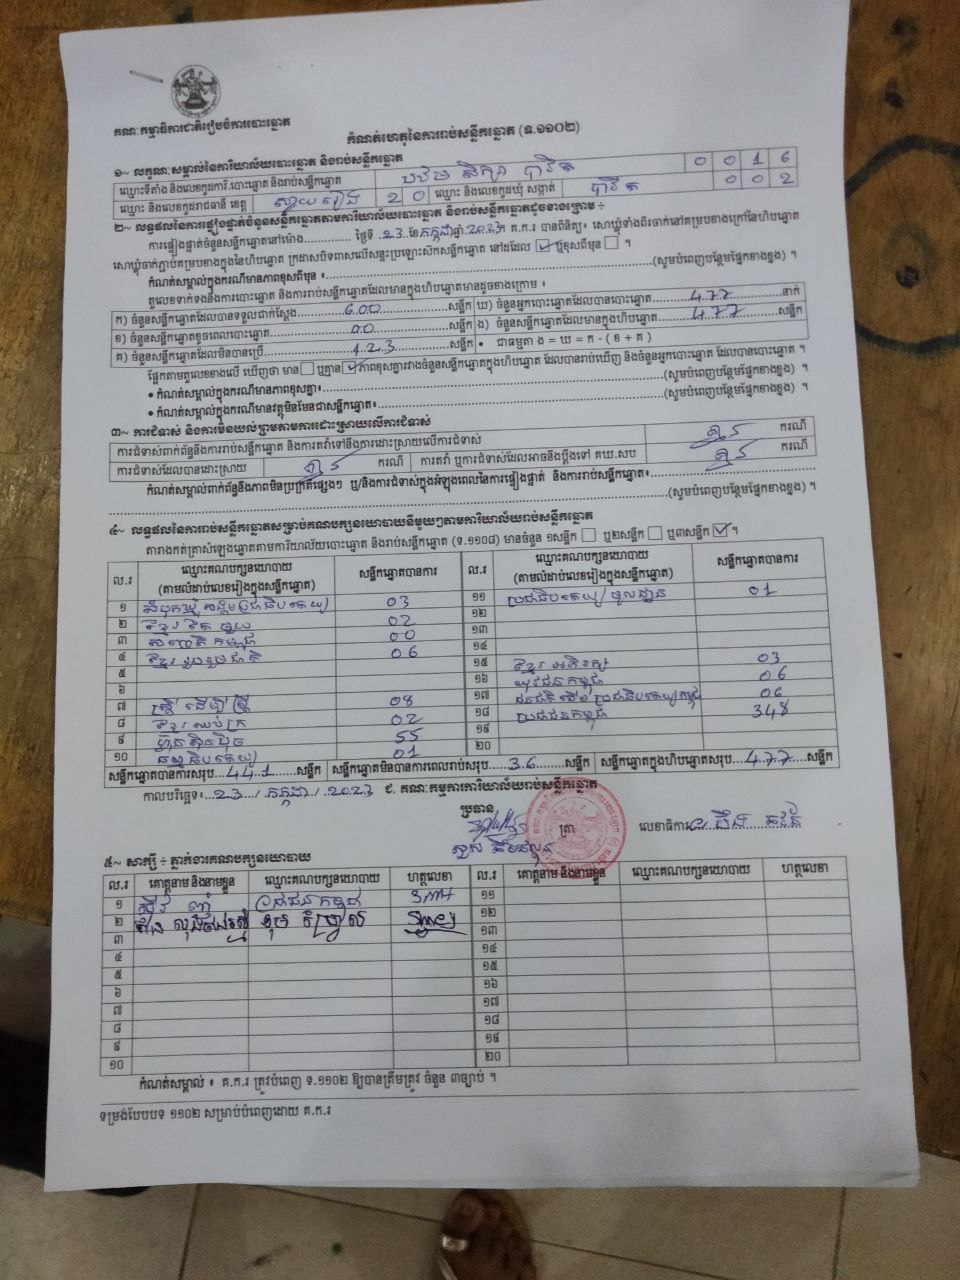 គណៈកម្មាធិការជាតិរៀបចំការបោះឆ្នោត
កំណត់ហេតុនៃការរាប់សន្លឹកឆ្នោត (ទ.១១០២)
១~ លក្ខណៈសម្គាល់នៃការិយាល័យបោះឆ្នោត និងរាប់សន្លឹកឆ្នោត
ឈ្មោះទីតាំង និងលេខកូដការិ.បោះឆ្នោត និងរាប់សន្លឹកឆ្នោត បឋមសិក្សា បាវិត 0 0 1 6
ឈ្មោះ និងលេខកូដរាជធានី ខេត្ត ស្វាយរៀង 2 0 ឈ្មោះ និងលេខកូដឃុំ សង្កាត់ បាវិត 0 0 2
២~ លទ្ធផលនៃការផ្ទៀងផ្ទាត់ចំនួនសន្លឹកឆ្នោតតាមការិយាល័យបោះឆ្នោត និងរាប់សន្លឹកឆ្នោតដូចខាងក្រោម ÷
ការផ្ទៀងផ្ទាត់ចំនួនសន្លឹកឆ្នោតនៅម៉ោង............. ថ្ងៃទី .23. ខែ កក្កដា ឆ្នាំ.2023 គ.ក.រ បានពិនិត្យ៖ សោឃ្លុំទាំងពីរចាក់នៅគម្របខាងក្រៅនៃហិបឆ្នោត
សោឃ្លុំចាក់ភ្ជាប់គម្របខាងក្នុងនៃហិបឆ្នោត ក្រដាសបិទពាសលើសន្ទះប្រឡោះសឹកសន្លឹកឆ្នោត នៅដដែល ☑ ឬខុសពីមុន ☐ ។
កំណត់សម្គាល់ក្នុងករណីមានភាពខុសពីមុន ៖.............(សូមបំពេញបន្ថែមផ្នែកខាងខ្នង) ។
តួលេខទាក់ទងនឹងការបោះឆ្នោត និងការរាប់សន្លឹកឆ្នោតដែលមានក្នុងហិបឆ្នោតមានដូចខាងក្រោម ៖
ក) ចំនួនសន្លឹកឆ្នោតដែលបានទទួលជាក់ស្តែង 600 សន្លឹក ឃ) ចំនួនអ្នកបោះឆ្នោតដែលបានបោះឆ្នោត 477 នាក់
ខ) ចំនួនសន្លឹកឆ្នោតខូចពេលបោះឆ្នោត 00 សន្លឹក ង) ចំនួនសន្លឹកឆ្នោតដែលមានក្នុងហិបឆ្នោត 477 សន្លឹក
គ) ចំនួនសន្លឹកឆ្នោតដែលមិនបានប្រើ 123 សន្លឹក • ជាធម្មតា ង = ឃ = ក - ( ខ + គ )
ផ្អែកតាមតួលេខខាងលើ ឃើញថា មាន ☐ ឬគ្មាន ☑ ភាពខុសគ្នារវាងចំនួនសន្លឹកឆ្នោតក្នុងហិបឆ្នោត ដែលបានរាប់ឃើញ និងចំនួនអ្នកបោះឆ្នោត ដែលបានបោះឆ្នោត ។
• កំណត់សម្គាល់ក្នុងករណីមានភាពខុសគ្នា៖.............(សូមបំពេញបន្ថែមផ្នែកខាងខ្នង) ។
• កំណត់សម្គាល់ក្នុងករណីមានវត្ថុមិនមែនជាសន្លឹកឆ្នោត៖.............(សូមបំពេញបន្ថែមផ្នែកខាងខ្នង) ។
៣~ ការជំទាស់ និងការមិនយល់ព្រមតាមការដោះស្រាយលើការជំទាស់
ការជំទាស់ពាក់ព័ន្ធនឹងការរាប់សន្លឹកឆ្នោត និងការតវ៉ាទៅនឹងការដោះស្រាយលើការជំទាស់ គ្មាន ករណី
ការជំទាស់ដែលបានដោះស្រាយ គ្មាន ករណី ការតវ៉ា ឬការជំទាស់ដែលអាចនឹងប្តឹងទៅ គឃ.សប គ្មាន ករណី
កំណត់សម្គាល់ពាក់ព័ន្ធនឹងភាពមិនប្រក្រតីផ្សេងៗ ឬ/និងការជំទាស់ក្នុងអំឡុងពេលនៃការផ្ទៀងផ្ទាត់ និងការរាប់សន្លឹកឆ្នោត៖.............
.............(សូមបំពេញបន្ថែមផ្នែកខាងខ្នង) ។
៤~ លទ្ធផលនៃការរាប់សន្លឹកឆ្នោតសម្រាប់គណបក្សនយោបាយនីមួយៗតាមការិយាល័យរាប់សន្លឹកឆ្នោត
តារាងកត់ត្រាសំឡេងឆ្នោតតាមការិយាល័យបោះឆ្នោត និងរាប់សន្លឹកឆ្នោត (ទ.១១០៨) មានចំនួន ១សន្លឹក ☐ ឬ២សន្លឹក ☐ ឬ៣សន្លឹក ☑ ។
ល.រ ឈ្មោះគណបក្សនយោបាយ (តាមលំដាប់លេខរៀងក្នុងសន្លឹកឆ្នោត) សន្លឹកឆ្នោតបានការ ល.រ ឈ្មោះគណបក្សនយោបាយ (តាមលំដាប់លេខរៀងក្នុងសន្លឹកឆ្នោត) សន្លឹកឆ្នោតបានការ
១ សំបុកឃ្មុំសង្គមប្រជាធិបតេយ្យ 03 ១១ ប្រជាធិបតេយ្យមូលដ្ឋាន 01
២ ខ្មែរតែមួយ 02 ១២
៣ សញ្ជាតិកម្ពុជា 00 ១៣
៤ ខ្មែររួបរួមជាតិ 06 ១៤
៥ ១៥ ខ្មែរអភិរក្ស 03
៦ ១៦ យុវជនកម្ពុជា 06
៧ ស្ត្រីដើម្បីស្ត្រី 08 ១៧ ជនជាតិដើមប្រជាធិបតេយ្យកម្ពុជា 06
៨ ខ្មែរឈប់ក្រ 02 ១៨ ប្រជាជនកម្ពុជា 348
៩ ហ៊្វុនស៊ិនប៉ិច 55 ១៩
១០ ធម្មាធិបតេយ្យ 01 ២០
សន្លឹកឆ្នោតបានការសរុប 441 សន្លឹក សន្លឹកឆ្នោតមិនបានការពេលរាប់សរុប 36 សន្លឹក សន្លឹកឆ្នោតក្នុងហិបឆ្នោតសរុប 477 សន្លឹក
កាលបរិច្ឆេទ៖ 23 / កក្កដា / 2023 ជ. គណៈកម្មការការិយាល័យរាប់សន្លឹកឆ្នោត
ប្រធាន
ត្រា លេខាធិការ
៥~ សាក្សី ÷ ភ្នាក់ងារគណបក្សនយោបាយ
ល.រ គោត្តនាម និងនាមខ្លួន ឈ្មោះគណបក្សនយោបាយ ហត្ថលេខា ល.រ គោត្តនាម និងនាមខ្លួន ឈ្មោះគណបក្សនយោបាយ ហត្ថលេខា
១ ប្រជាជនកម្ពុជា ១១
២ ១២
៣ ១៣
៤ ១៤
៥ ១៥
៦ ១៦
៧ ១៧
៨ ១៨
៩ ១៩
១០ ២០
កំណត់សម្គាល់ ៖ គ.ក.រ ត្រូវបំពេញ ទ.១១០២ ឱ្យបានត្រឹមត្រូវ ចំនួន ៣ច្បាប់ ។
ទម្រង់បែបបទ ១១០២ សម្រាប់បំពេញដោយ គ.ក.រ